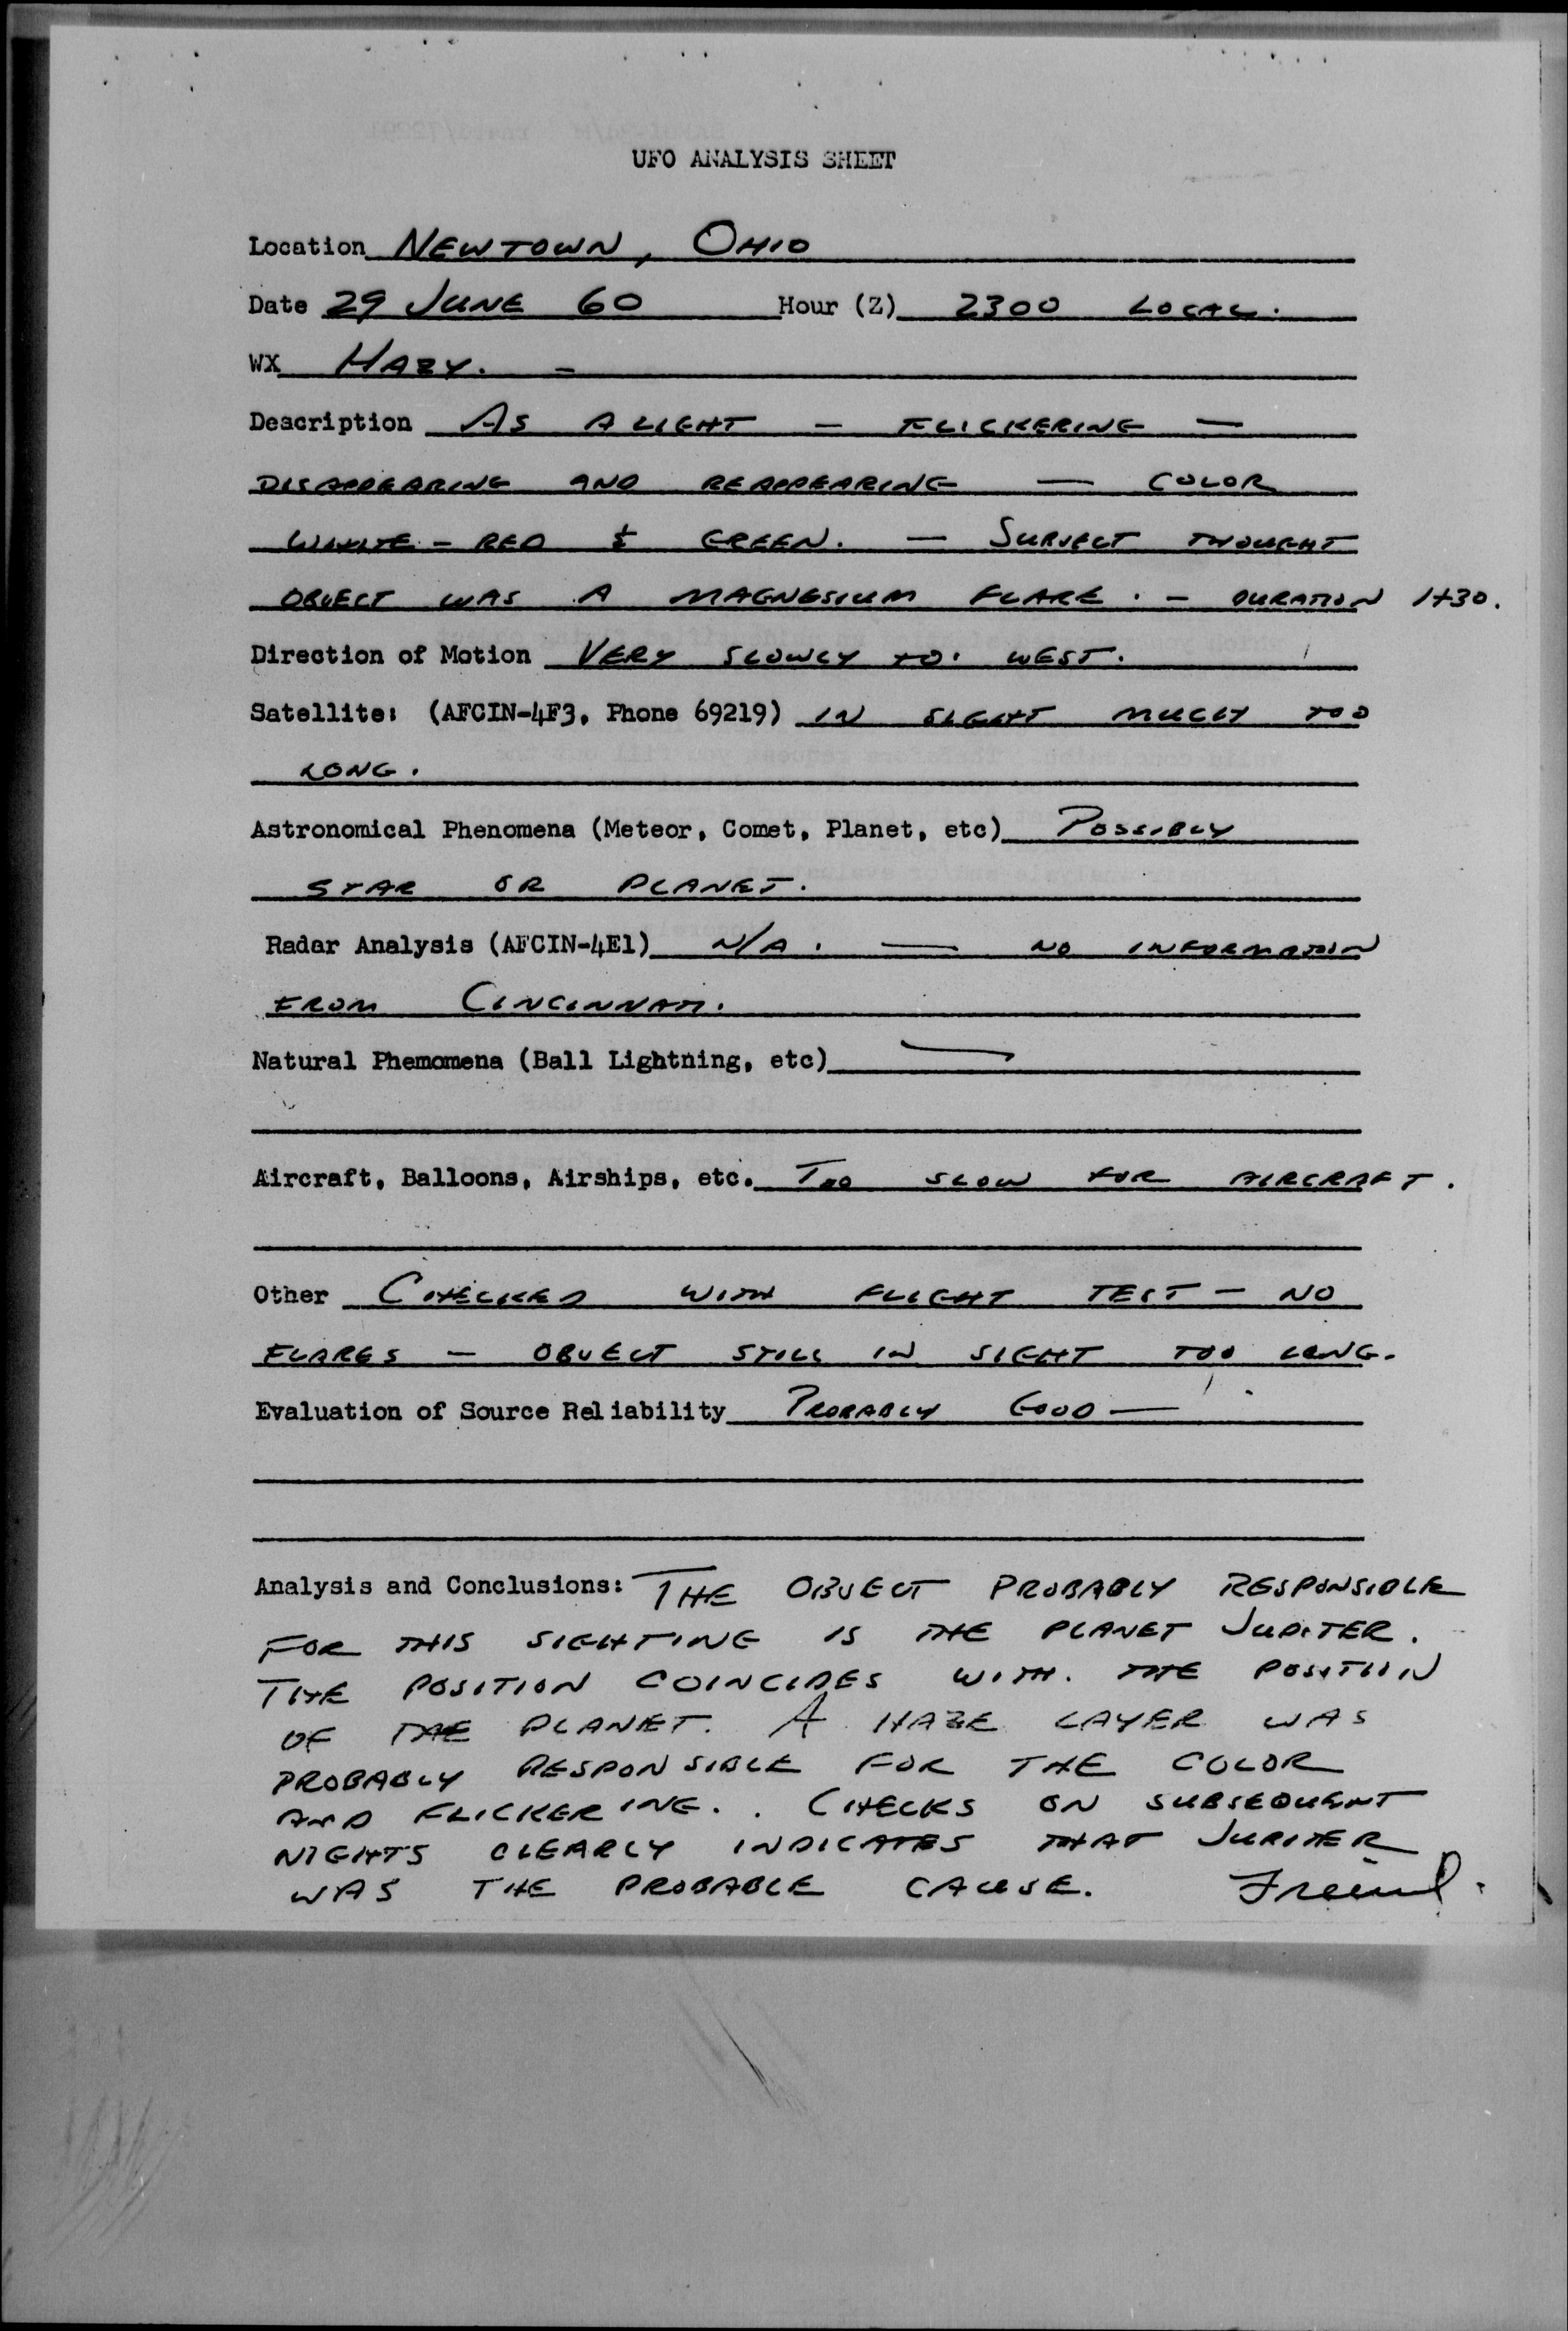 UFO ANALYSIS SHEET
Location NEWTOWN, OHIO
Date 29 JUNE 60 Hour (Z) 2300 LOCAL.
WX HAZY. -
Description AS A LIGHT - FLICKERING -
DISAPPEARING AND REAPPEARING - COLOR
WHITE - RED & GREEN. - SUBJECT THOUGHT
OBJECT WAS A MAGNESIUM FLARE. - DURATION 1+30.
Direction of Motion VERY SLOWLY TO. WEST.
Satellite: (AFCIN-4F3, Phone 69219) IN SIGHT MUCH TOO
LONG.
Astronomical Phenomena (Meteor, Comet, Planet, etc) POSSIBLY
STAR OR PLANET.
Radar Analysis (AFCIN-4E1) N/A. - NO INFORMATION
FROM CINCINNATI.
Natural Phemomena (Ball Lightning, etc) —
Aircraft, Balloons, Airships, etc. TOO SLOW FOR AIRCRAFT.
Other CHECKED WITH FLIGHT TEST - NO
FLARES - OBJECT STILL IN SIGHT TOO LONG.
Evaluation of Source Reliability PROBABLY GOOD -
Analysis and Conclusions: THE OBJECT PROBABLY RESPONSIBLE
FOR THIS SIGHTING IS THE PLANET JUPITER.
THE POSITION COINCIDES WITH. THE POSITION
OF THE PLANET. A HAZE LAYER WAS
PROBABLY RESPONSIBLE FOR THE COLOR
AND FLICKERING. . CHECKS ON SUBSEQUENT
NIGHTS CLEARLY INDICATES THAT JUPITER
WAS THE PROBABLE CAUSE. Friend.